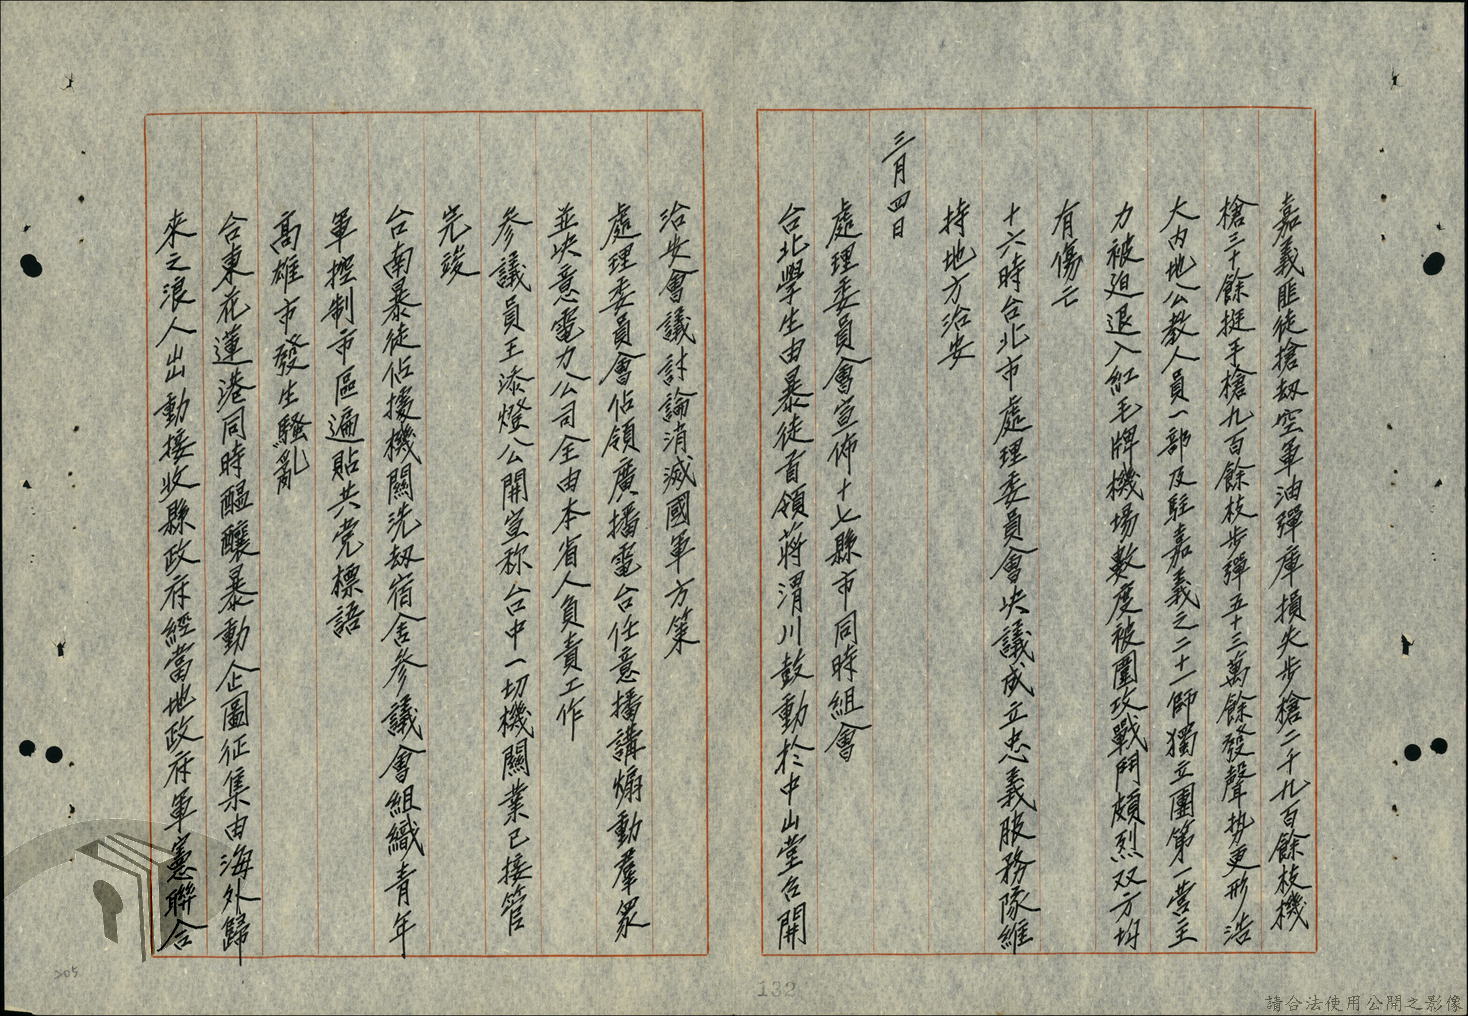 嘉義匪徒搶刼空軍油彈庫損失步槍二千九百餘枝機
槍三十餘挺手槍九百餘枝步彈五十三萬餘發聲势更形浩
大内地公教人員一部及駐嘉義之二十一師獨立團第一营主
力被迫退入紅毛牌機場數度被圍攻戰鬥頗烈双方均
有傷亡
十六時台北市處理委員會决議成立忠義服務隊維
持地方治安
三月四日
處理委員會宣佈十七縣市同時組會
台北學生由暴徒首領蔣渭川鼓動於中山堂召開
治安會議討論消滅國軍方策
處理委員會佔領廣播電台任意播講煽動羣衆
並决意電力公司全由本省人負責工作
參議員王添燈公開宣称台中一切機關業已接管
完竣
台南暴徒佔據機關洗刼宿舍參議會組織青年
軍控制市區遍貼共党標語
高雄市發生騷亂
台東花蓮港同時醞釀暴動企圖征集由海外歸
來之浪人出動接收縣政府經當地政府軍憲聯合
132
205
請合法使用公開之影像